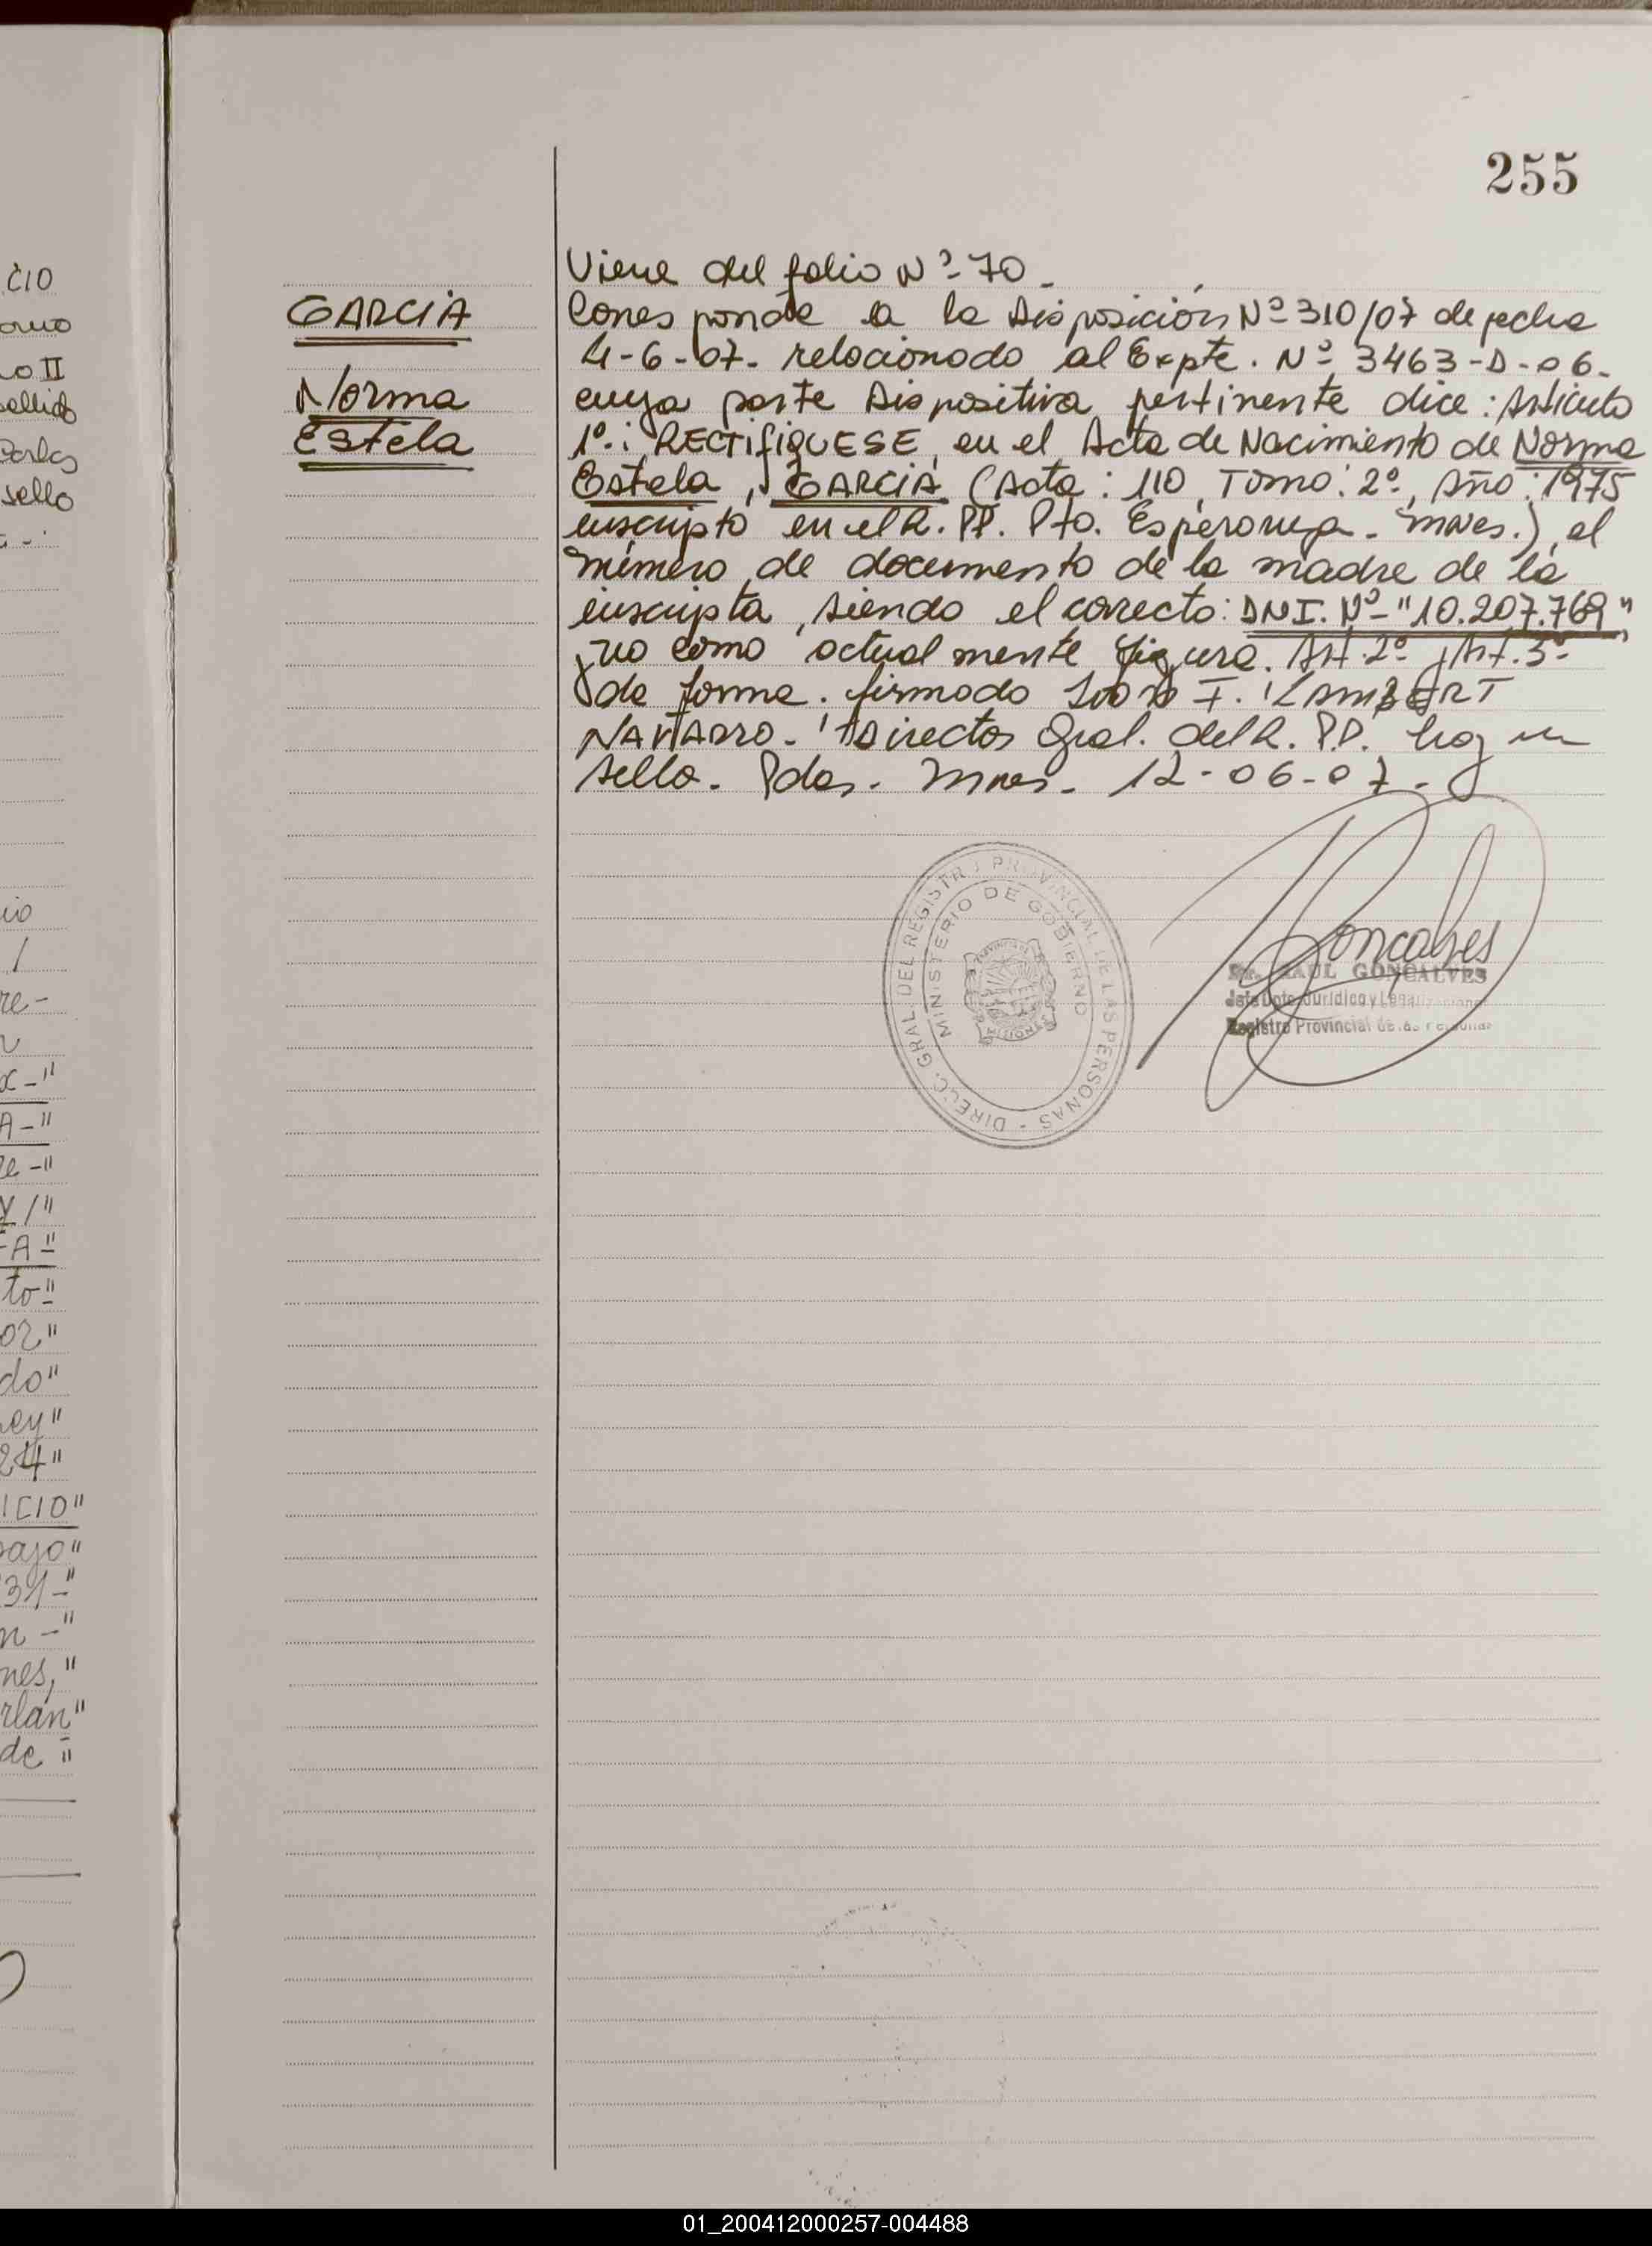 255
Viene del folio Nº 70.
GARCIA
Norma
Estela
Corresponde a la Disposición Nº 310/07 de fecha
4-6-07. relacionado al Expte. Nº 3463-D-06.
cuya parte Dispositiva pertinente dice: Artículo
1º: RECTIFIQUESE, en el Acta de Nacimiento de Norma
Estela, GARCIA (Acta: 110, Tomo: 2º, Año: 1975
inscripto en el R. PP. Pto. Esperanza. Mnes.), el
número de documento de la madre de la
inscripta, siendo el correcto: DNI. Nº "10.207.769"
y no como actualmente figura. Art. 2º y Art. 3º
de forma. firmado I. LAMBERT
NAVARRO. Director Gral. del R. P.P. hay un
sello. Pdas. Mnes. 12-06-07.
DIRECC. GRAL. DEL REGISTRO PROVINCIAL DE LAS PERSONAS -
MINISTERIO DE GOBIERNO
Goncalves
Dr. RAUL GONCALVES
Jefe Dpto. Jurídico y
Registro Provincial de las Personas
CIO
o II
sello
re-
x-"
A-"
re-"
Y/"
A-"
to"
or"
do"
ey"
24"
ICIO"
bajo"
31-"
n-"
nes,"
rlán"
de "
01_200412000257-004488